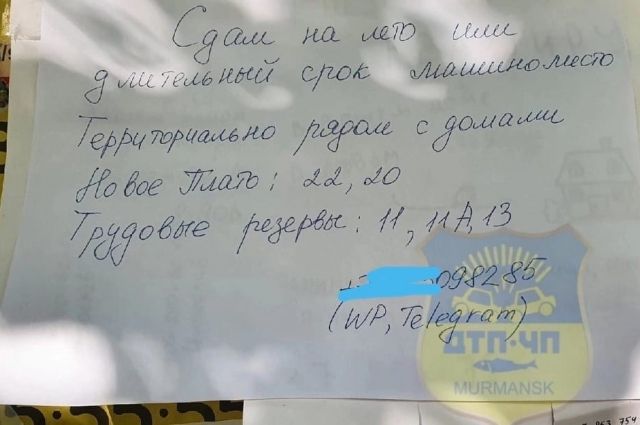 Сдам на лето или
длительный срок машиноместо
Территориально рядом с домами
Новое Плато: 22, 20
Трудовые резервы: 11, 11А, 13
098285
(WP, Telegram)
ДТП·ЧП
MURMANSK
754